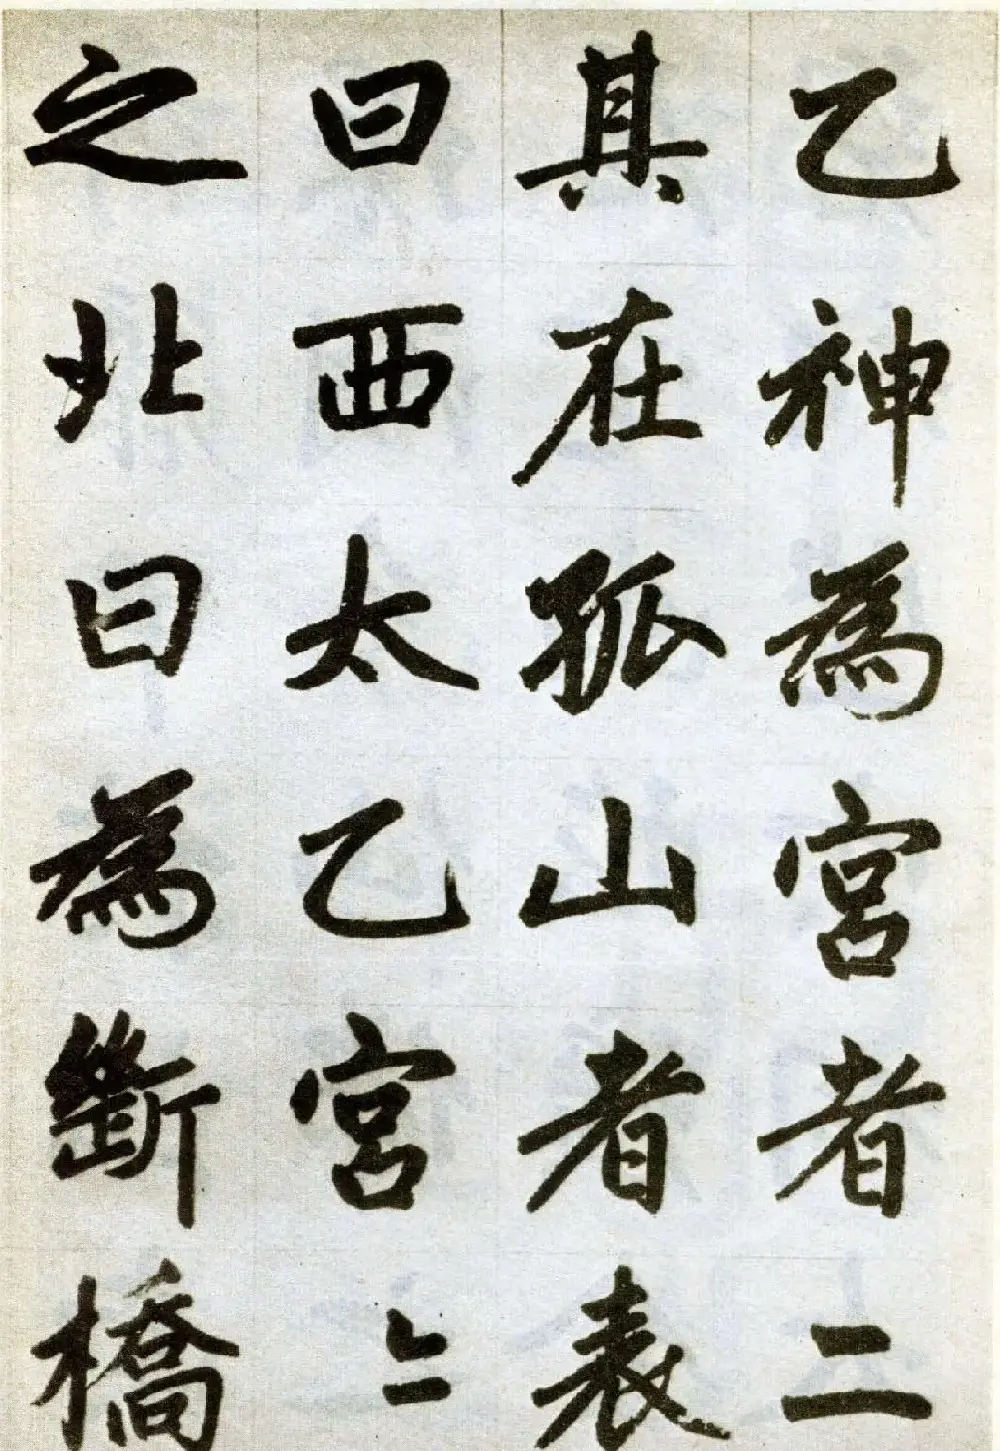 乙神為宮者二
其在孤山者表
曰西太乙宮〻
之北曰為斷橋